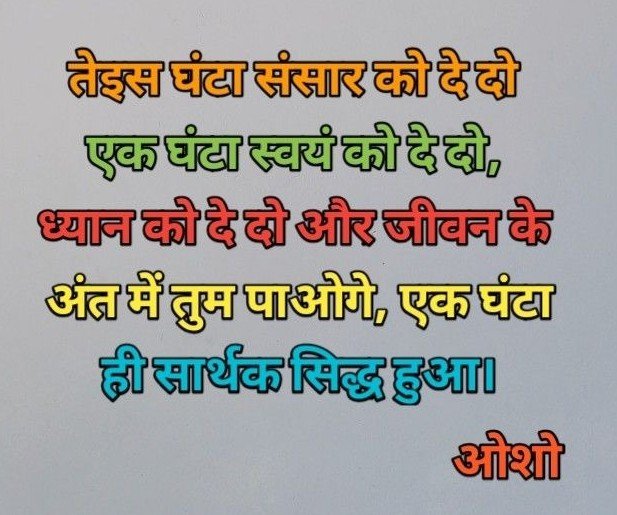 तेइस घंटा संसार को दे दो
एक घंटा स्वयं को दे दो,
ध्यान को दे दो और जीवन के
अंत में तुम पाओगे, एक घंटा
ही सार्थक सिद्ध हुआ।
ओशो